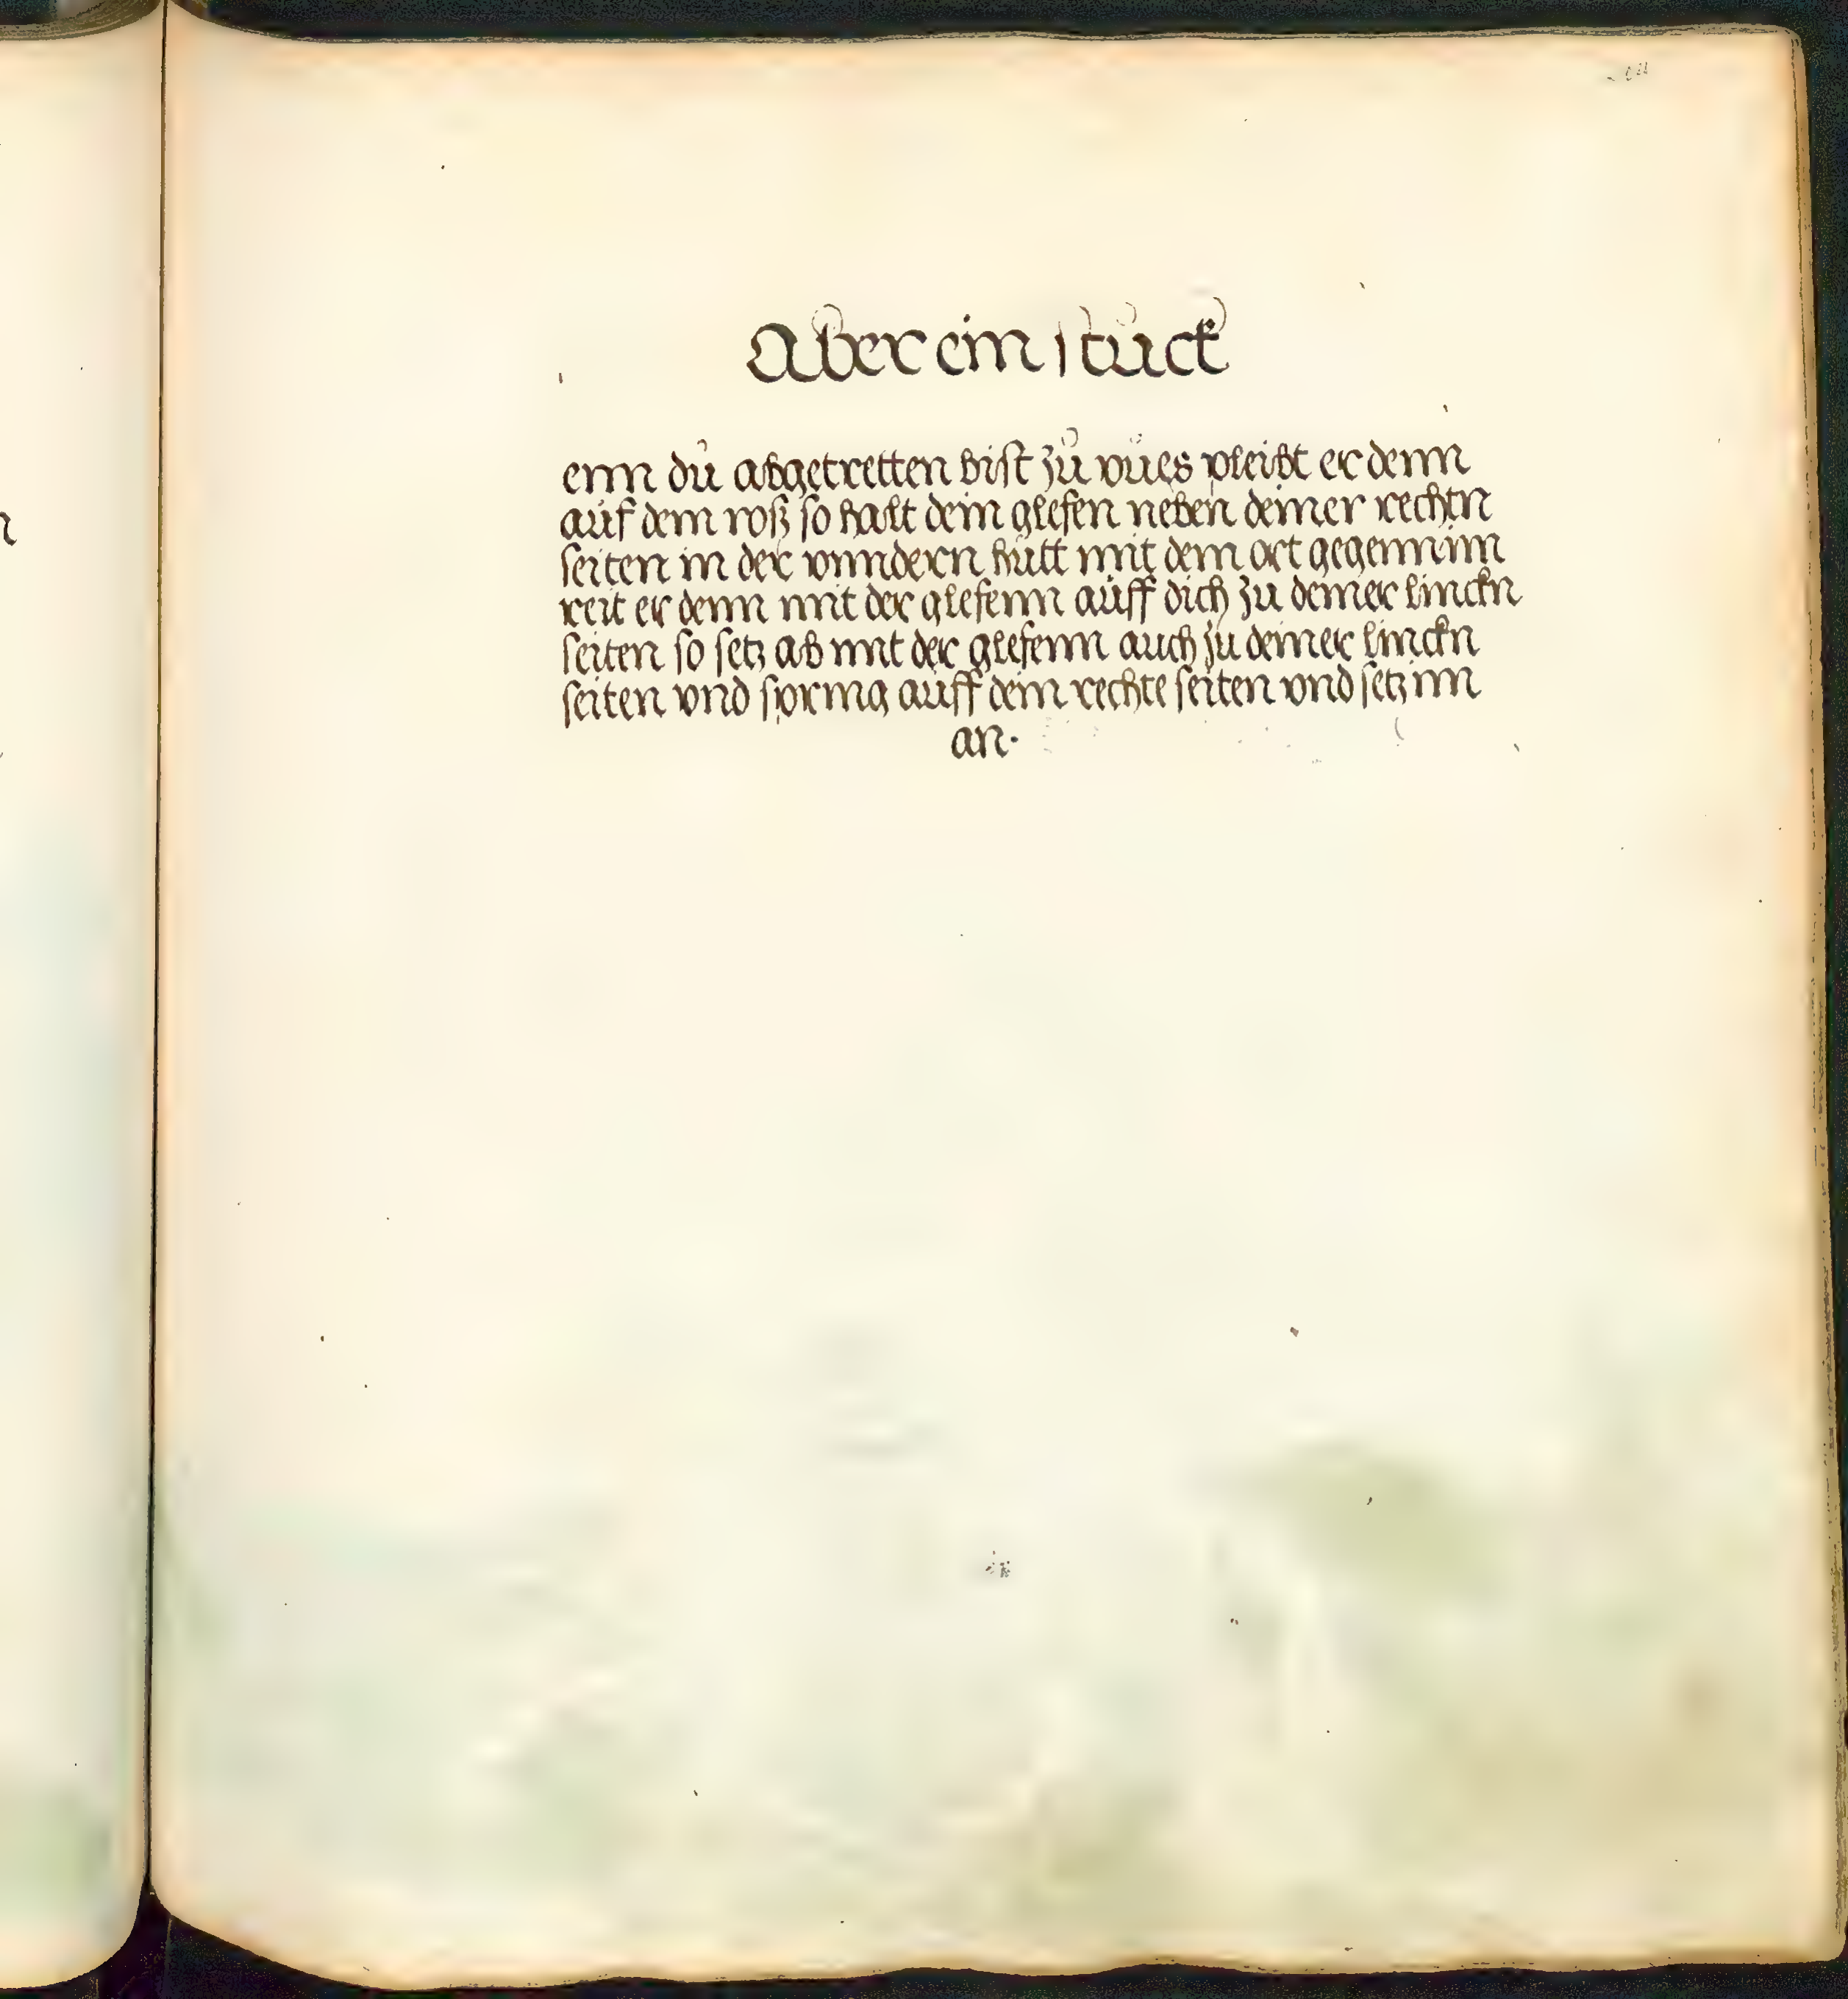 Aber ein stuck
enn dü abgetretten bist zü vües pleibt er denn
aüf dem roß so halt dein glefen neben deiner rechtn
seiten in der vnndern hütt mit dem ort gegenn im
reit er denn mit der glefenn aüff dich zu deiner linckn
seiten so setz ab mit der glefenn auch zu deiner linckn
seiten vnd spring aüff dein rechte seiten vnd setz im
an.